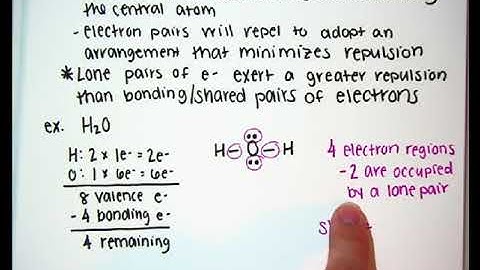 the central atom
- electron pairs will repel to adopt an
arrangement that minimizes repulsion
*Lone pairs of e- exert a greater repulsion
than bonding/shared pairs of electrons
ex. H2O
H: 2 x 1e- = 2e-
O: 1 x 6e- = 6e-
8 valence e-
- 4 bonding e-
4 remaining
H O H
4 electron regions
- 2 are occupied
by a lone pair